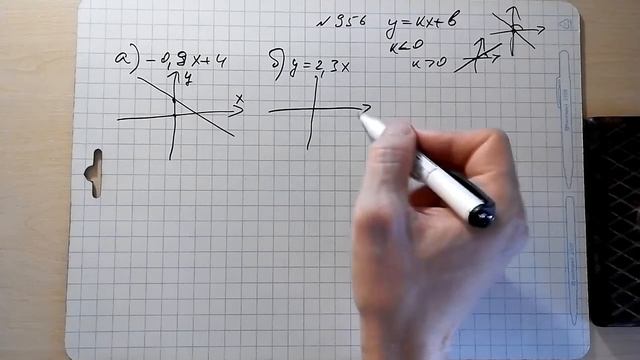 N 956 y = kx + b
k<0
k>0
а) -0,9x+4
б) y = 2,3x
y
x